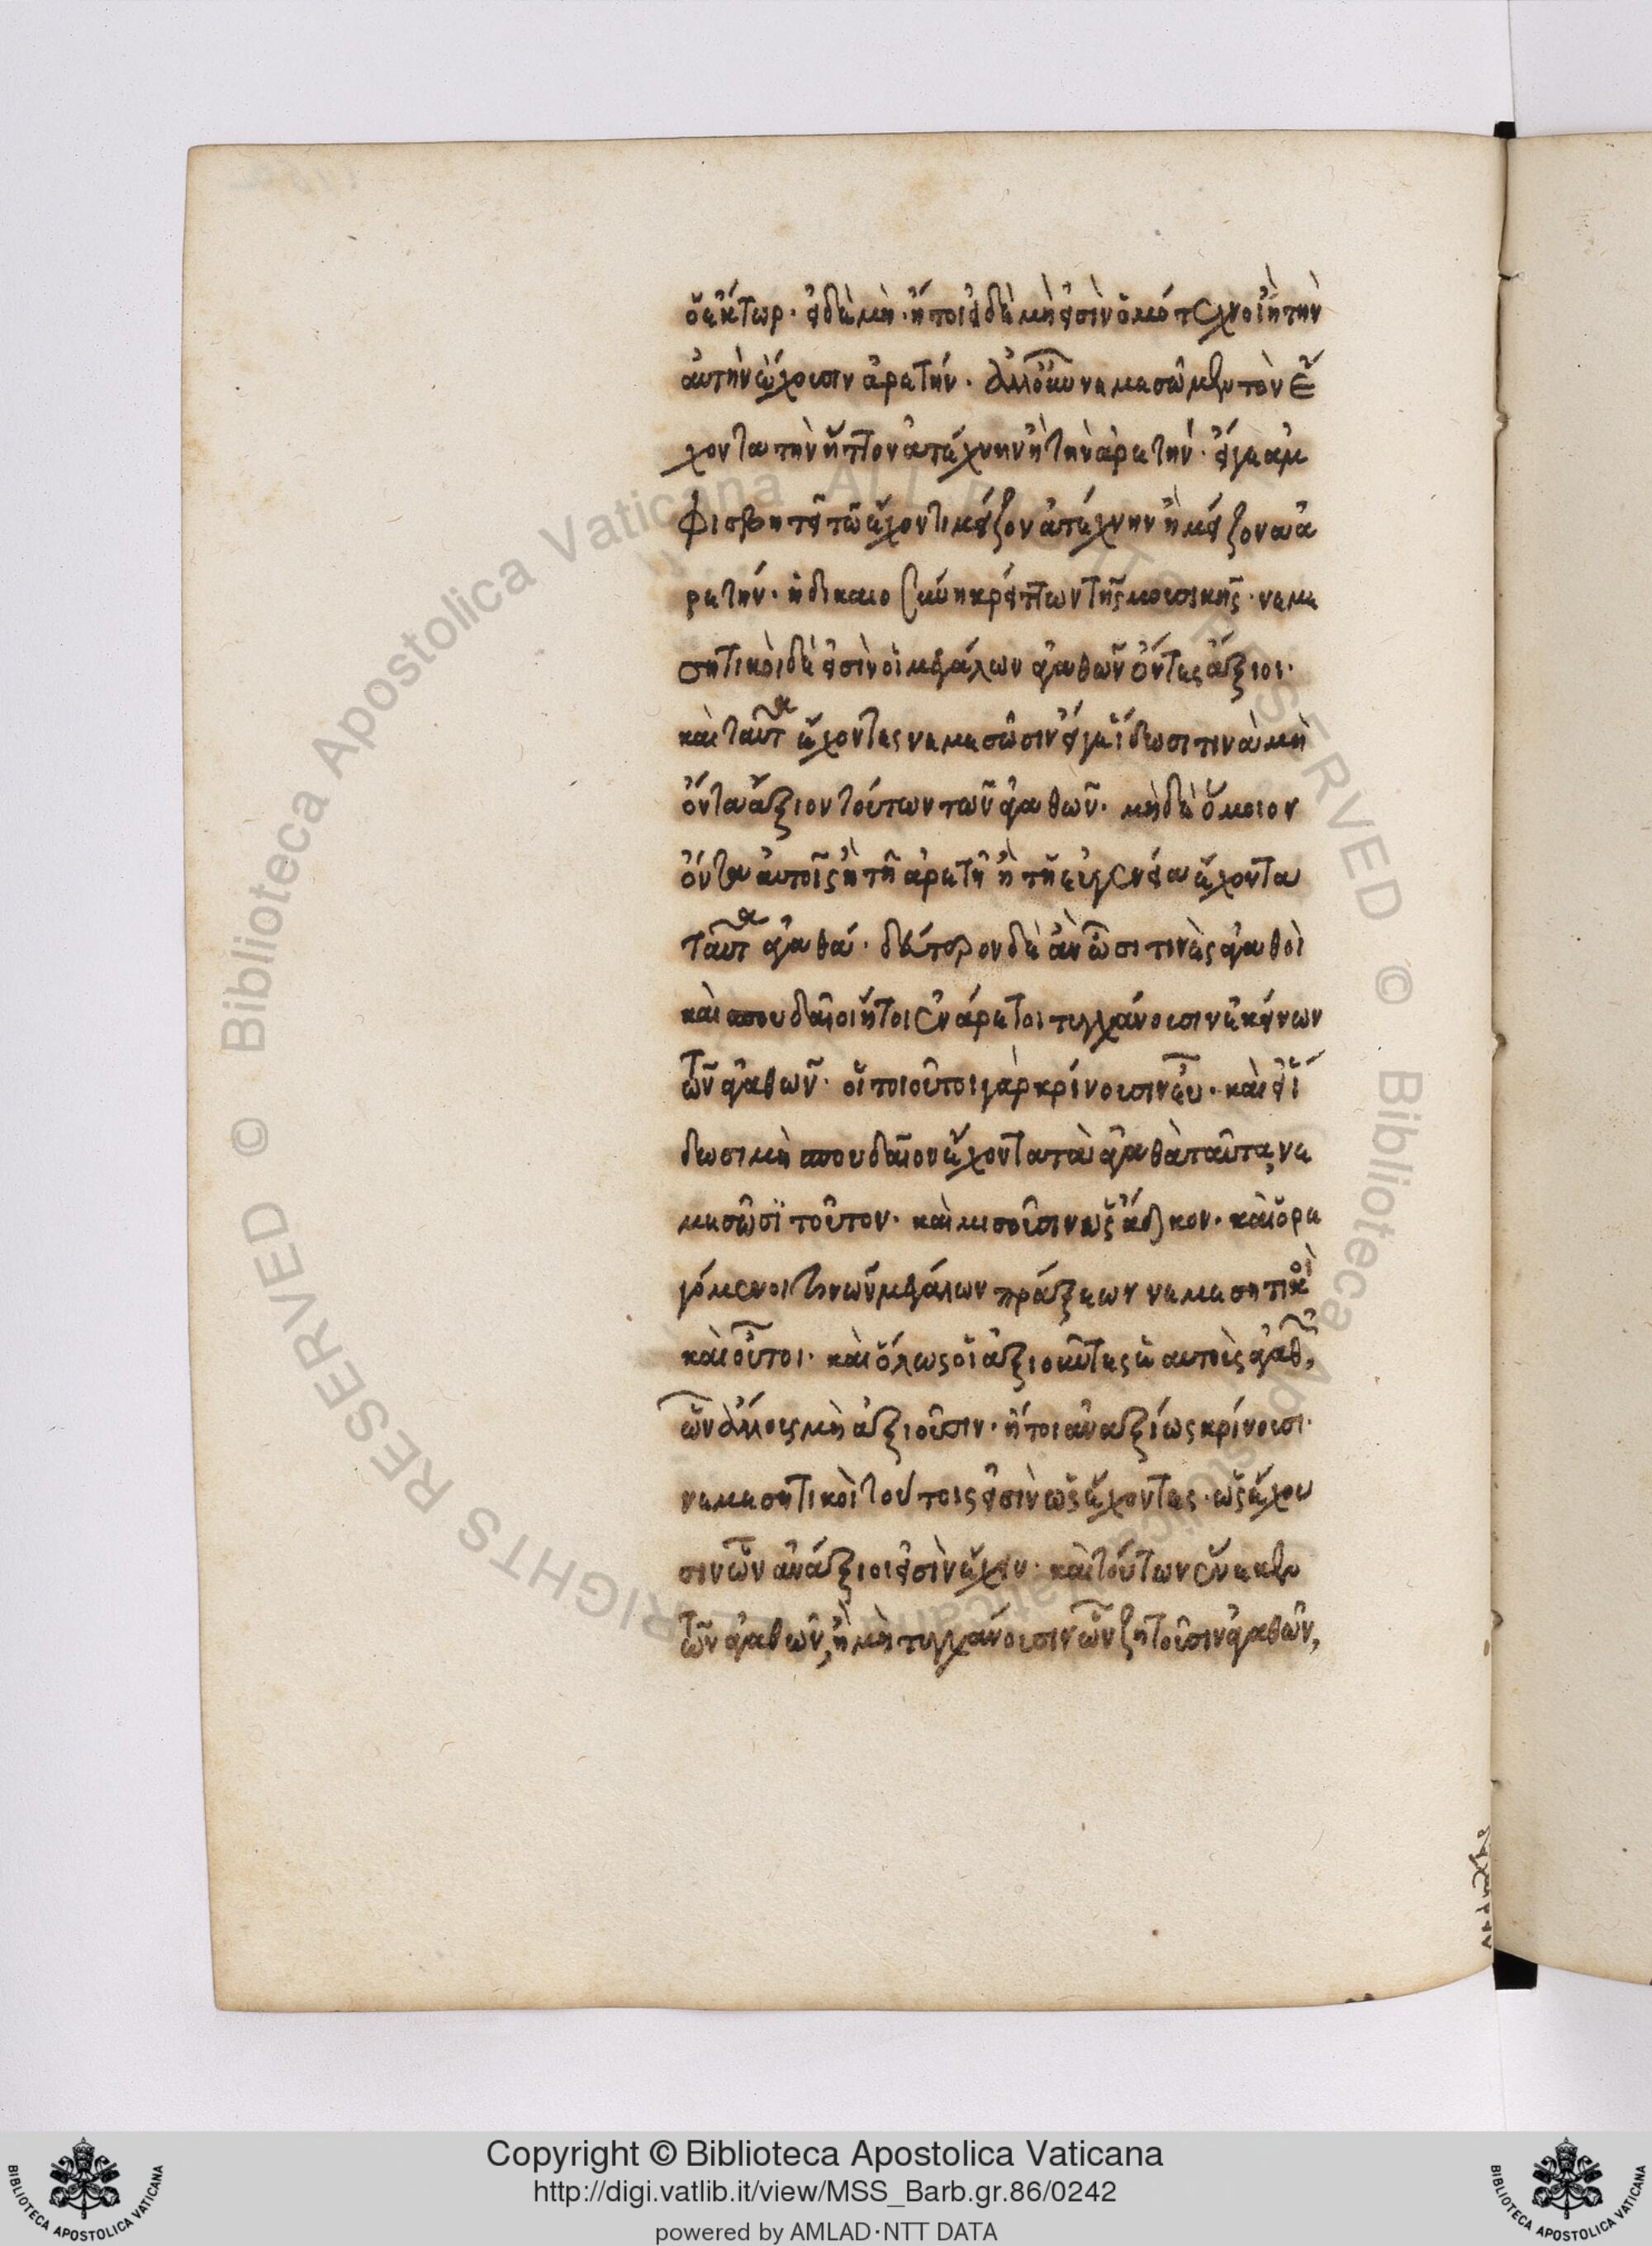 ὁ ἕκτωρ· εἰ δὲ μὴ· ἤτοι εἰ δὲ μὴ εἰσὶν ὁμότεχνοι ἢ τὴν
αὐτὴν ἔχουσιν ἀρετήν· ἀλλ' οὖν νεμεσῶμεν τὸν ἔ
χοντα τὴν ἥττονα τέχνην ἢ τὴν ἀρετήν· εἴγε ἀμ
φισβητεῖ τῶ ἔχοντι μείζονα τέχνην ἢ μείζονα ἀ
ρετήν· ἡ δικαιοσύνη κρείττων τῆς μουσικῆς· νεμε
σητικοὶ δέ εἰσὶν οἱ μεγάλων ἀγαθῶν ὄντες ἄξιοι·
καὶ ταῦτα ἔχοντες νεμεσῶσιν εἴγε ἴδωσι τινὰ μὴ
ὄντα ἄξιον τούτων τῶν ἀγαθῶν· μὴ δὲ ὅμοιον
ὄντα αὐτοῖς ἢ τῆ ἀρετῆ ἢ τῆ εὐγενεία ἔχοντα
ταῦτα ἀγαθά· δεύτερον δὲ ἂν ὦσι τινὲς ἀγαθοὶ
καὶ σπουδαῖοι ἤτοι ἐνάρετοι τυγχάνουσιν ἐκείνων
τῶν ἀγαθῶν· οἱ τοιοῦτοι γὰρ κρίνουσιν εὖ· καὶ εἰ ἴ
δωσι μὴ σπουδαῖον ἔχοντα τὰ ἀγαθὰ ταῦτα, νε
μεσῶσι τοῦτον· καὶ μισοῦσιν ὡς ἄδικον· καὶ ὀρε
γόμενοι τινῶν μεγάλων πράξεων νεμεσητικοὶ
καὶ οὗτοι· καὶ ὅλως οἱ ἀξιοῦντες ἑαυτοὺς ἀγαθῶν,
ὧν ἄλλους μὴ ἀξιοῦσιν· ἤτοι ἀναξίως κρίνουσι·
νεμεσητικοὶ τούτοις εἰσὶν ὡς ἔχοντες· ὡς ἔχου
σιν ὧν ἀνάξιοι εἰσὶν ἔχειν· καὶ τούτων ἕνεκεν
τῶν ἀγαθῶν, ἢ μὴ τυγχάνουσιν ὧν ζητοῦσιν ἀγαθῶν,
Copyright © Biblioteca Apostolica Vaticana
http://digi.vatlib.it/view/MSS_Barb.gr.86/0242
powered by AMLAD·NTT DATA